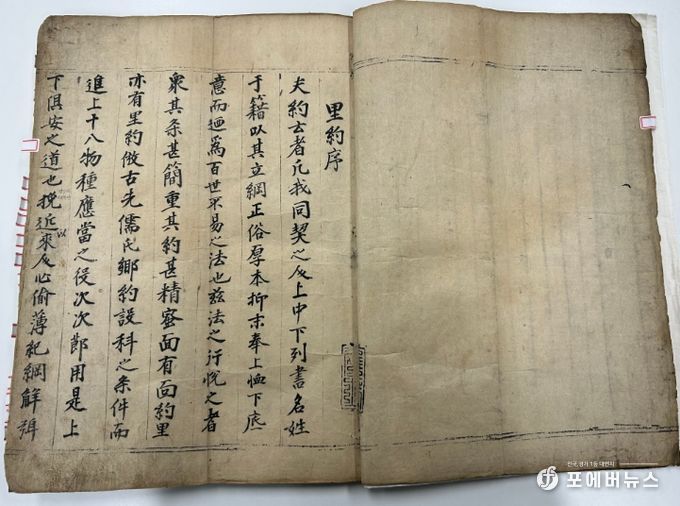 里約序
夫約玄者凡我同契之友上中下列書名姓
于籍以其立綱正俗厚本抑末奉上恤下底
意而迺爲百世不易之法也玆法之行悅之者
衆其条甚簡重其約甚精密面有面約里
亦有里約倣古先儒氏鄉約設科之条件而
進上十八物種應當之役次次節用是上
下俱安之道也挽近以來反心偷薄紀綱解弛
포에버뉴스